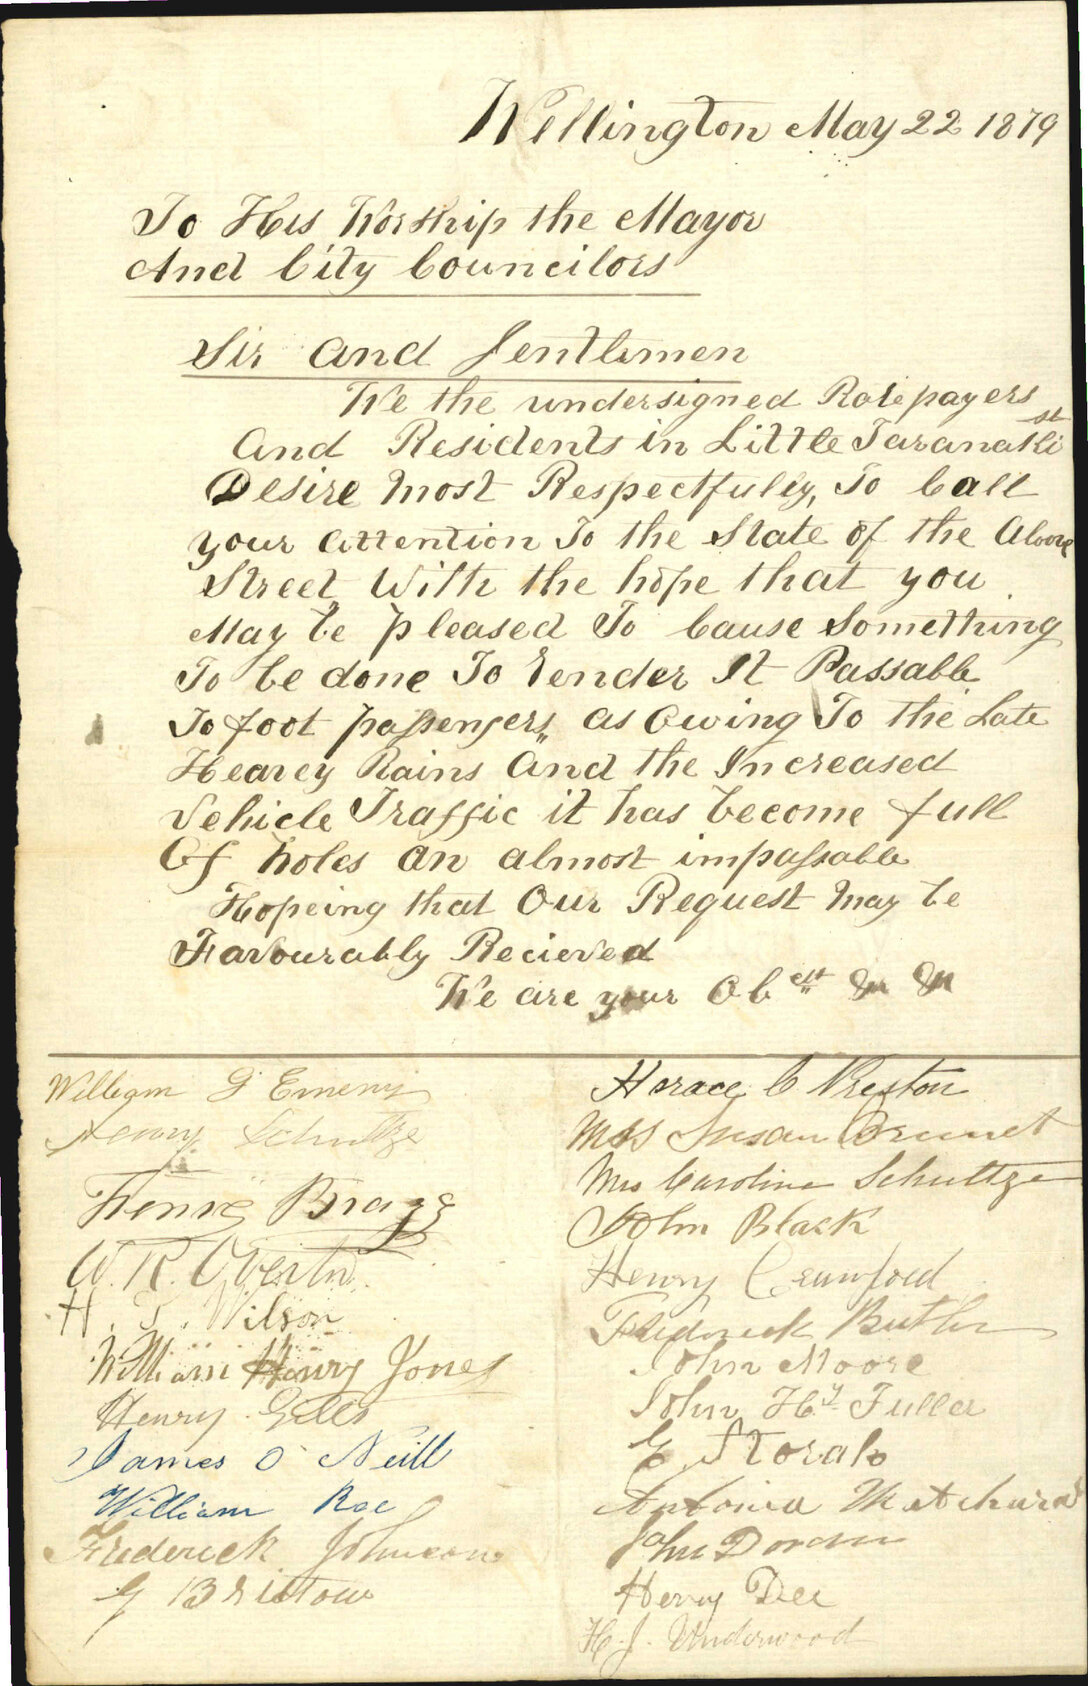 Wellington May 22 1879
To His Worship the Mayor
And City Councilors
Sir and Gentlemen
We the undersigned Ratepayers
And Residents in Little Taranaki st
Desire most Respectfully, To Call
your attention To the State of the Above
Street With the hope that you
May be pleased To Cause Something
To be done To render It Passable
To foot passengers, as Owing To the Late
Heavey Rains And the Increased
Vehicle Traffic it has become full
Of holes an almost impassable
Hopeing that Our Request may be
Favourably Recieved
We are your Obest
William G Emeny
Henry Schultze
Bragg
W. R.
H. J. Wilson
William Henry Jones
Henry
James O'Neill
William Roe
Frederick Johnson
G Bristow
Horace C Preston
Mrs Susan
Mrs Caroline Schultze
John Black
Henry Crawford
Frederick Butler
John Moore
John Hy Fuller
John Doran
Henry Dee
H. J. Underwood